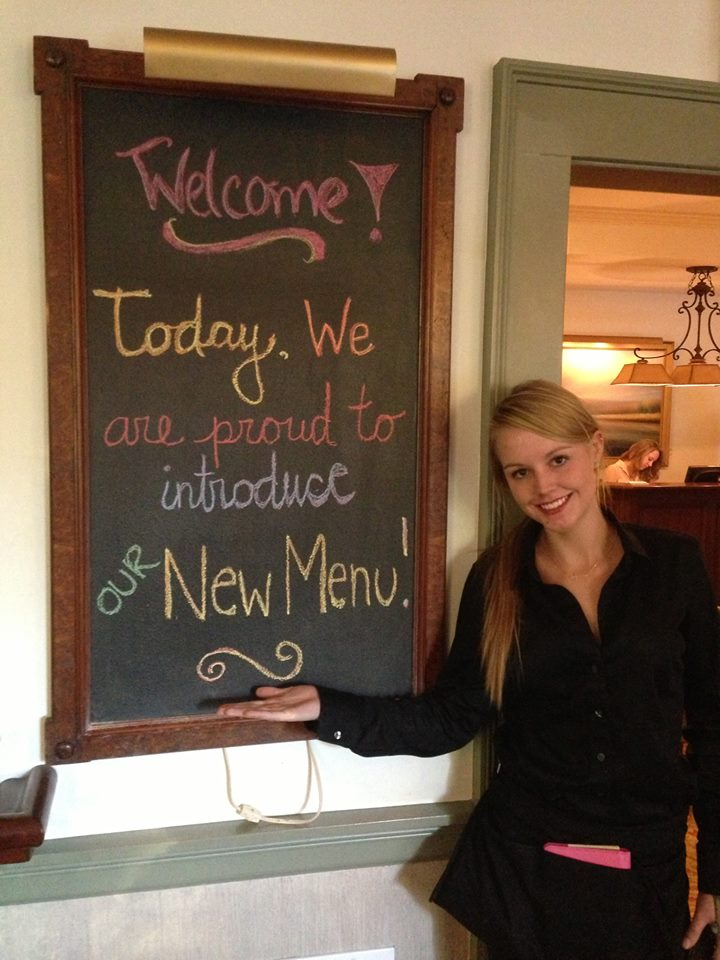 Welcome!
Today, We
are proud to
introduce
OUR New Menu!